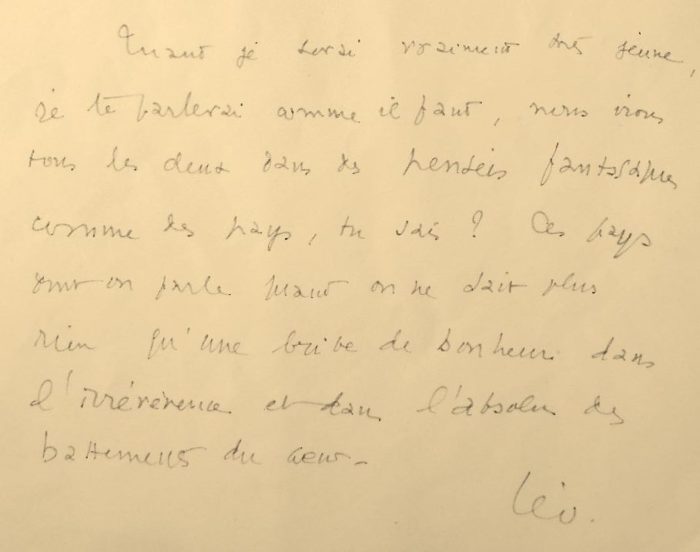 Quand je serai vraiment très jeune,
je te parlerai comme il faut, nous irons
tous les deux dans des pensées fantastiques
comme des pays, tu sais ? Ces pays
dont on parle quand on ne sait plus
rien qu'une bribe de bonheur dans
l'irrévérence et dans l'absolu des
battements du cœur.
Léo.